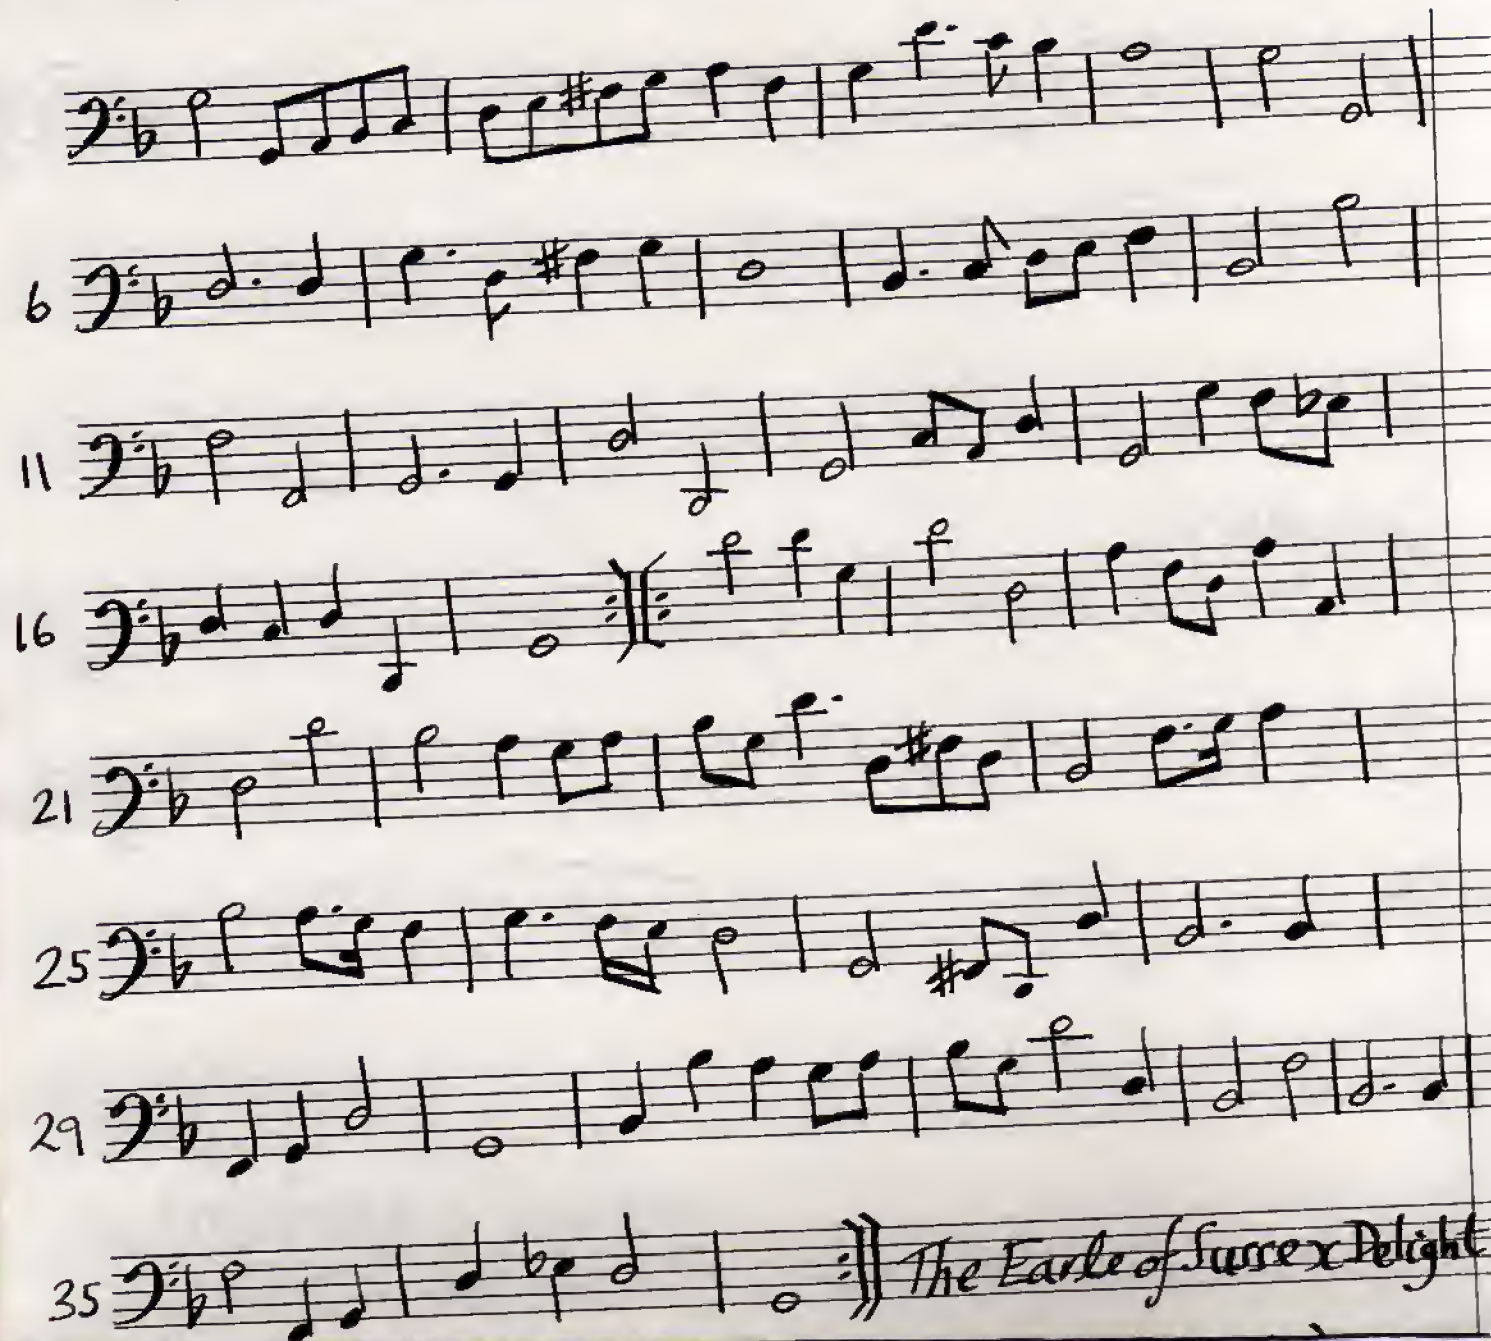 6
11
16
21
25
29
35
The Earle of Sussex Delight